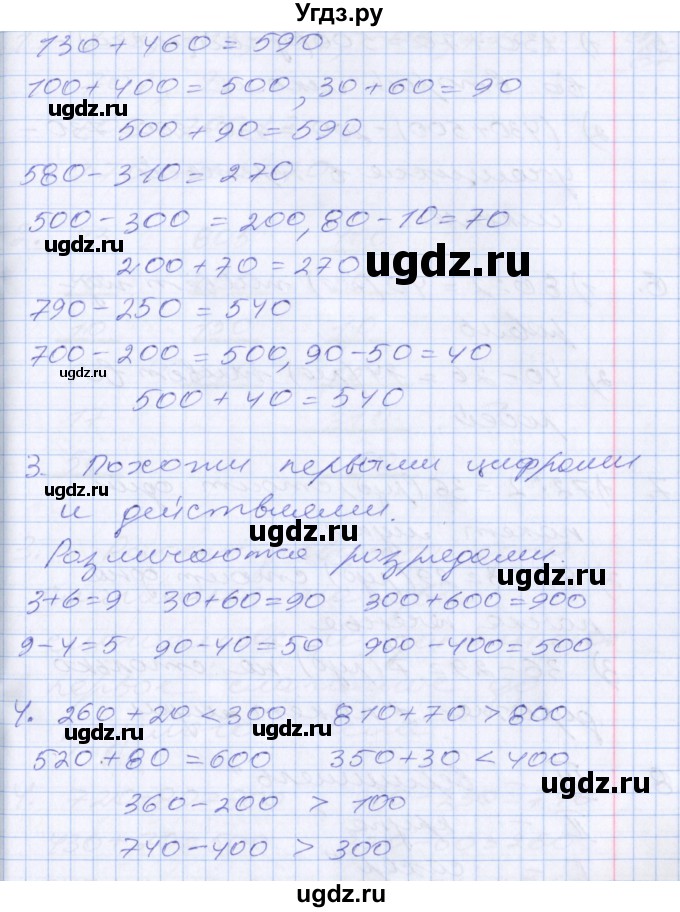 Угдз.ру
130 + 460 = 590
100 + 400 = 500, 30 + 60 = 90
ugdz.ru
500 + 90 = 590
580 - 310 = 270
500 - 300 = 200, 80 - 10 = 70
ugdz.ru
200 + 70 = 270
ugdz.ru
790 - 250 = 540
700 - 200 = 500, 90 - 50 = 40
ugdz.ru
500 + 40 = 540
3. Похожи первыми цифрами
ugdz.ru
и действиями.
ugdz.ru
Различаются разрядами.
ugdz.ru
3+6=9 30+60=90 300+600=900
9-4=5 90-40=50 900-400=500
4. 260+20<300 810+70>800
ugdz.ru
520+80=600 350+30<400
ugdz.ru
360-200 > 100
740-400 > 300
ugdz.ru